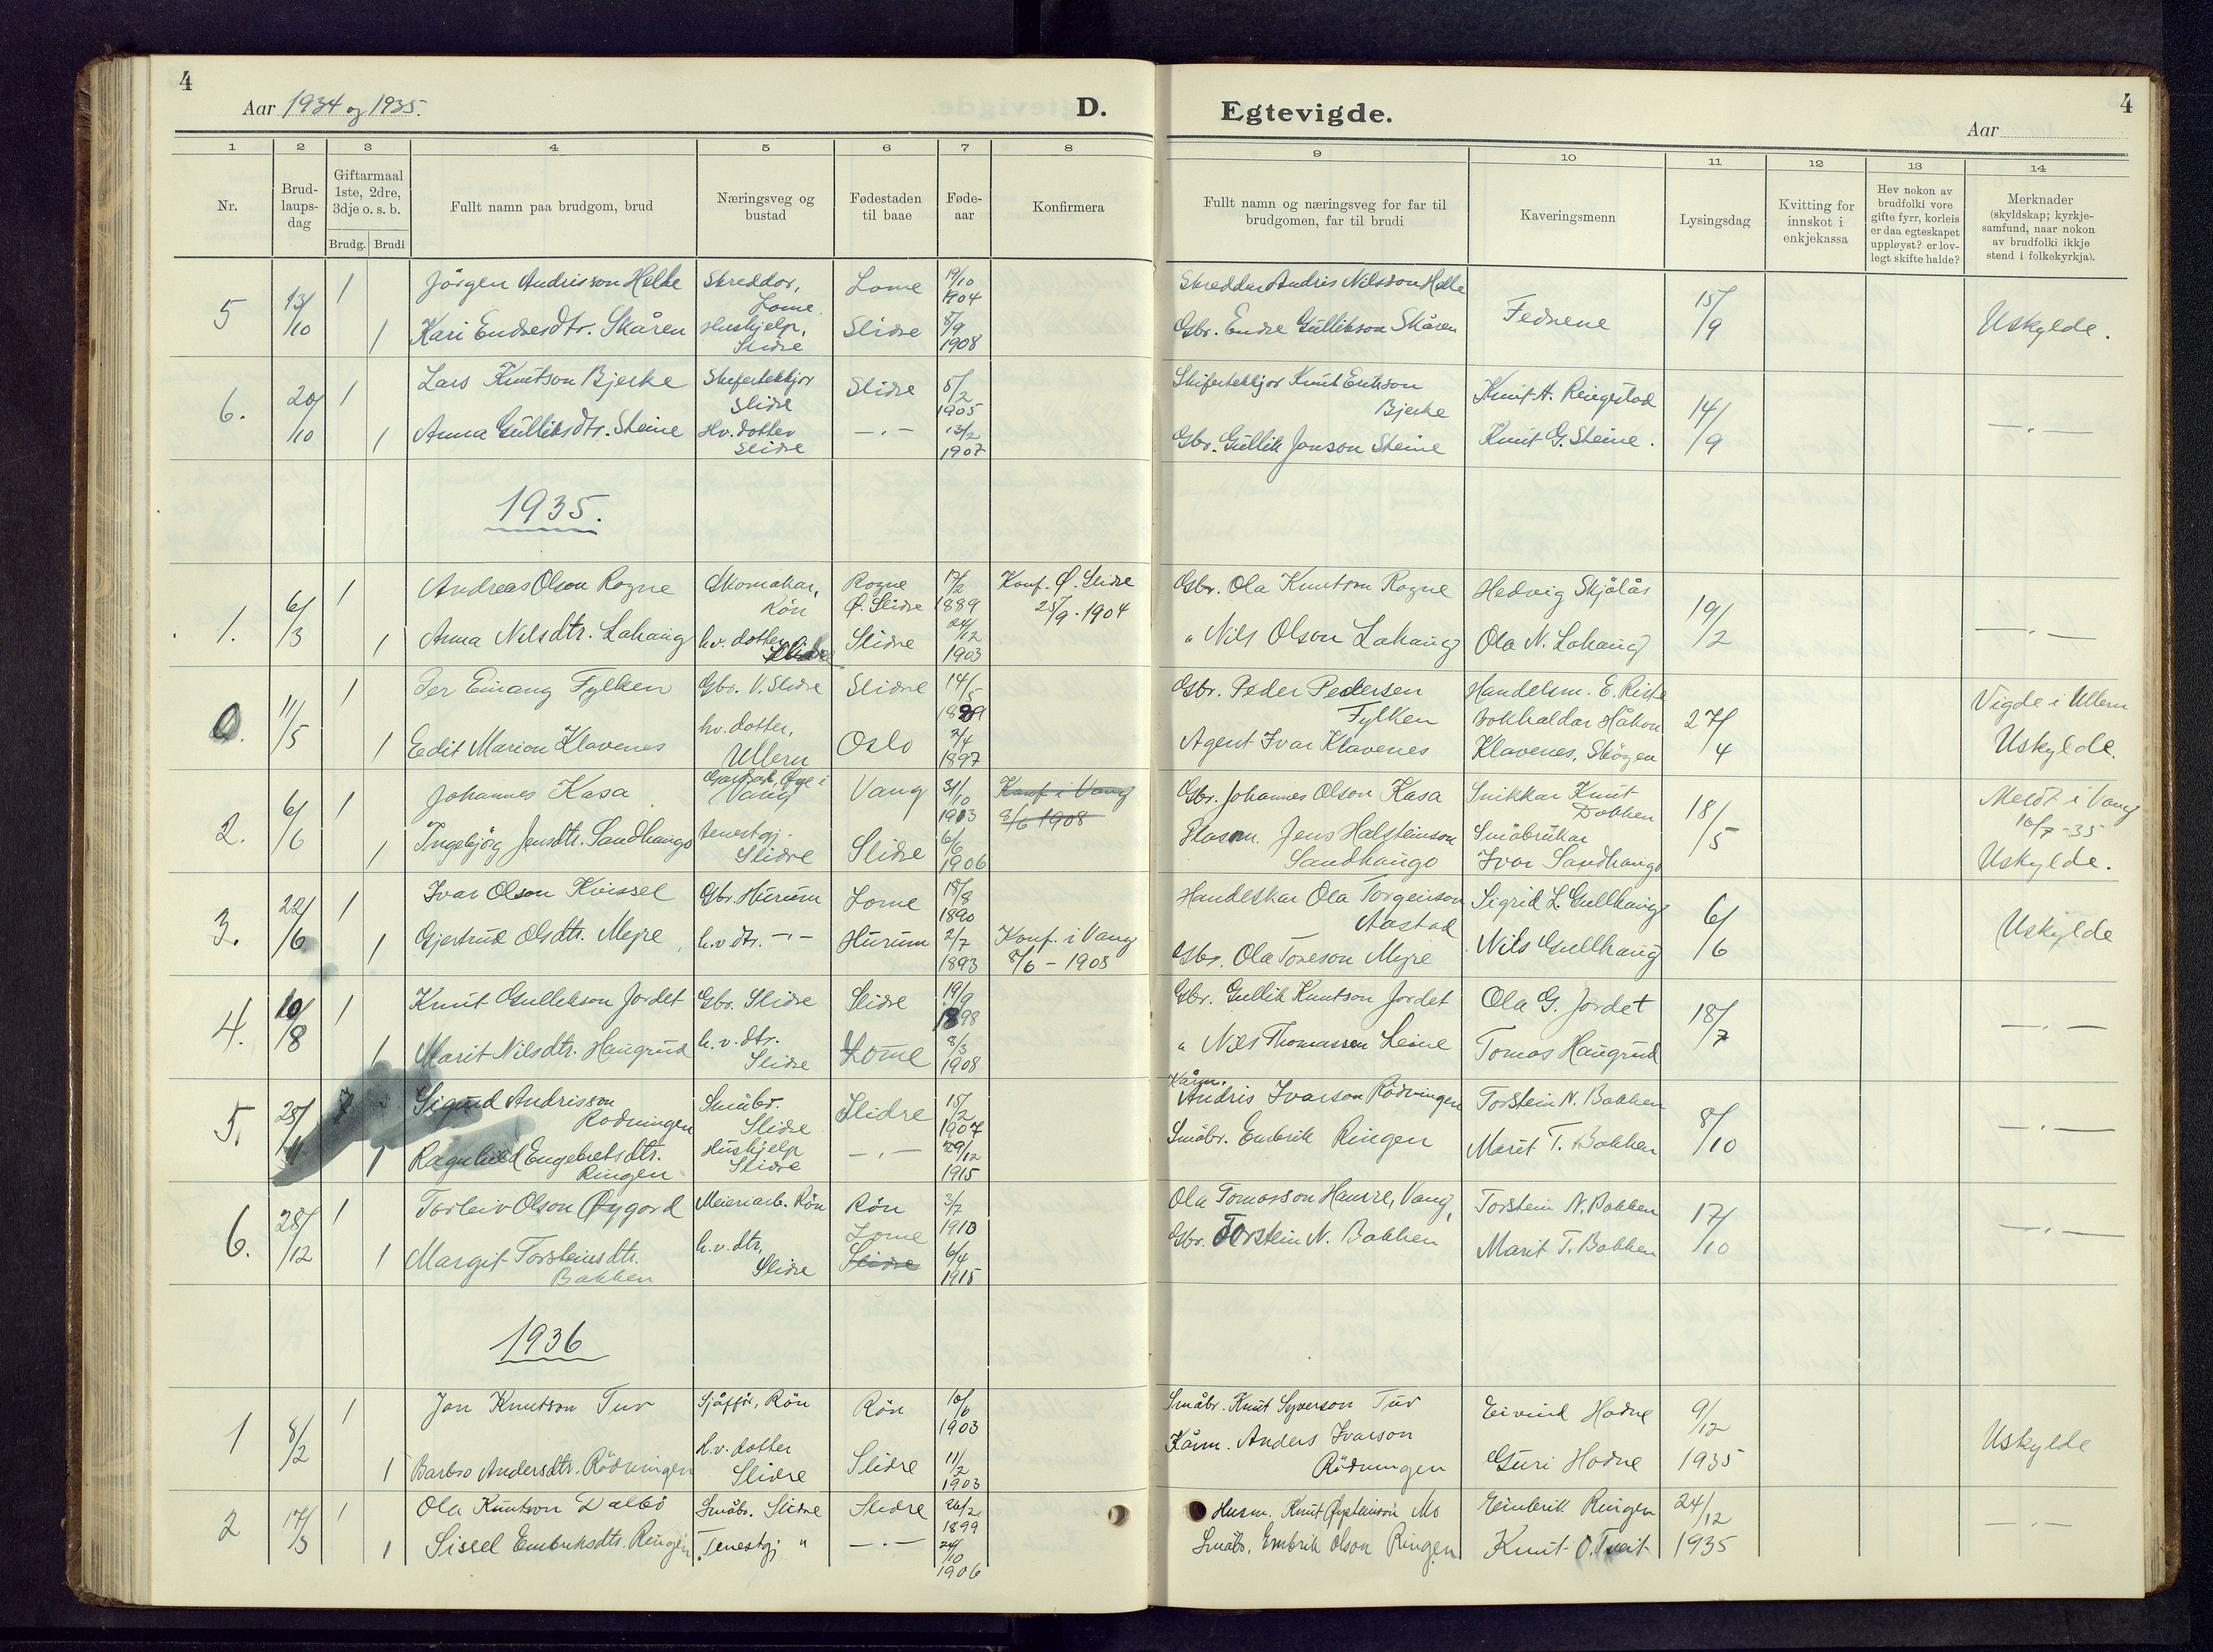 4
Aar 1934 og 1935.
D.
1 2 3 4 5 6 7 8
Nr.
Brud-
laups-
dag
Giftarmaal
1ste, 2dre,
3dje o. s. b.
Brudg. Brudi
Fullt namn paa brudgom, brud
Næringsveg og
bustad
Fødestaden
til baae
Føde-
aar
Konfirmera
5 13/10 1 Jörgen Andrisson Helle Skreddor, Lome. Lome 19/10 1904
1 Kari Endresdtr. Skåren Hushjelp, Slidre Slidre 8/9 1908
6. 20/10 1 Lars Knutson Bjerke Skifertekkjor Slidre Slidre 5/2 1905
1 Anna Gulliksdtr. Steine Hv. dotter Slidre —.— 13/2 1907
1935.
1. 6/3 1 Andreas Olson Rogne Skomakar, Rön Rogne Ø. Slidre 17/2 1889 Konf. Ø. Slidre 25/9-1904
1 Anna Nilsdtr. Lahaug h.v. dotter Slidre Slidre 24/12 1903
0. 11/5 1 Per Einang Fylken Gbr. V. Slidre Slidre 14/5
1 Eedit Marion Klavenes hv. dotter, Ullern Oslo 2/4 1897
2. 6/6 1 Johannes Kasa Vang Vang 31/10 1903 Konf. i Vang 9/6 1908
1 Ingebjörg Jensdtr. Sandhaugo tenestgj. Slidre Slidre 6/6 1906
3. 22/6 1 Ivar Olson Kvissel Gbr. Hurum Lome 18/8 1890
1 Gjertrud Olsdtr. Myre h.v dtr. —.— Hurum 2/7 1893 Konf. i Vang 8/6 - 1908
4. 10/8 1 Knut Gullikson Jordet Gbr. Slidre Slidre 19/9 1898
1 Marit Nilsdtr. Haugrud h.v. dtr. Slidre Lome 8/3 1908
5. 25/11 1 Sigurd Andrisson Rodningen Småbr. Slidre Slidre 15/2 1907
1 Ragnhild Engebretsdtr. Ringen Hushjelp Slidre —.— 29/12 1915
6. 28/12 1 Torleiv Olson Øygard Meieriarb. Rön Rön 3/7 1910
1 Margit Torsteinsdtr. Bakken h.v. dtr. Slidre Lome Slidre 6/4 1915
1936
1 8/2 1 Jon Knutson Tuv Sjåffør, Rön Rön 10/6 1903
1 Barbro Andersdtr. Rödningen H.v. dotter Slidre Slidre 11/2 1903
2 17/3 1 Ola Knutson Dalbö Småbr. Slidre Slidre 26/2 1899
1 Sissel Embriksdtr. Ringen Tenestgj. " —.— 24/10 1906
Egtevigde.
4
Aar
9 10 11 12 13 14
Fullt namn og næringsveg for far til
brudgomen, far til brudi
Kaveringsmenn
Lysingsdag
Kvitting for
innskot i
enkjekassa
Hev nokon av
brudfolki vore
gifte fyrr, korleis
er daa egteskapet
uppløyst? er lov-
legt skifte halde?
Merknader
(skyldskap; kyrkje-
samfund, naar nokon
av brudfolki ikkje
stend i folkekyrkja).
Skreddar Andris Nilsson Helle
Gbr. Endre Gullikson Skåren Fedrene 15/9 Uskylde.
Skifertekkjor Knut Erikson Bjerke Knut A. Ringestad 14/9 —.—
Gbr. Gullik Jonson Steine Knut G. Steine.
Gbr. Ola Knutson Rogne Hedvig Skjölås 19/2 —.—
" Nils Olson Lahaug Ola N. Lahaug
Gbr. Peder Pedersen Fylken Handelsm. E. Riste 27/4 Vigde i Ullern
Agent Ivar Klavenes Bokhaldar Håkon Klavenes, Skögen Uskylde.
Gbr. Johannes Olson Kasa Snikkar Knut Dokken 18/5 Meldt i Vang 10/7-35
Jens Halsteinson Sandhaugo Småbrukar Ivar Sandhaugo Uskylde.
Handelskar Ola Torgeirson Aastad Sigrid L. Gullhaug 6/6 Uskylde
Gbr. Ola Toreson Myre Nils Gullhaug
Gbr. Gullik Knutson Jordet Ola G. Jordet 18/7 —.—
" Nils Thomassen Leine Tomas Haugrud
Kårm. Andris Ivarson Rödningen Torstein N. Bakken 8/10 —.—
Småbr. Embrik Ringen Marit T. Bakken
Ola Tomasson Haurre, Vang, Torstein N. Bakken 17/10 —.—
Gbr. Torstein N. Bakken Marit T. Bakken
Småbr. Knut Syverson Tuv Eivind Hodne 9/12 Uskylde
Kårm. Anders Ivarson Rödningen Guri Hodne 1935
Husm. Knut Øysteinson Mo Embrik Ringen 24/12 —.—
Småbr. Embrik Olson Ringen Knut O. Tveit 1935